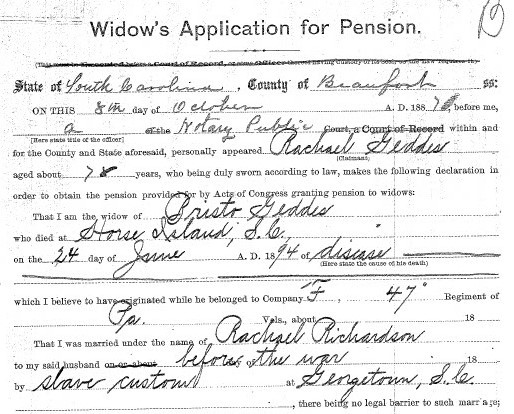 Widow's Application for Pension.
State of South Carolina, County of Beaufort ss:
ON THIS 8th day of October A. D. 188 before me,
a of the Notary Public Court, a Court of Record within and
[Here state title of the officer]
for the County and State aforesaid, personally appeared Rachael Geddes
(Claimant)
aged about 78 years, who being duly sworn according to law, makes the following declaration in
order to obtain the pension provided for by Acts of Congress granting pension to widows:
That I am the widow of Bristo Geddes
who died at Horse Island, S.C.
on the 24 day of June A. D. 1894 of disease
(Here state the cause of his death)
which I believe to have originated while he belonged to Company "F", 47" Regiment of
Pa. Vols., about 18
That I was married under the name of Rachael Richardson
to my said husband on or about before the war 18
by slave custom at Georgetown, S.C.
, there being no legal barrier to such marriage;